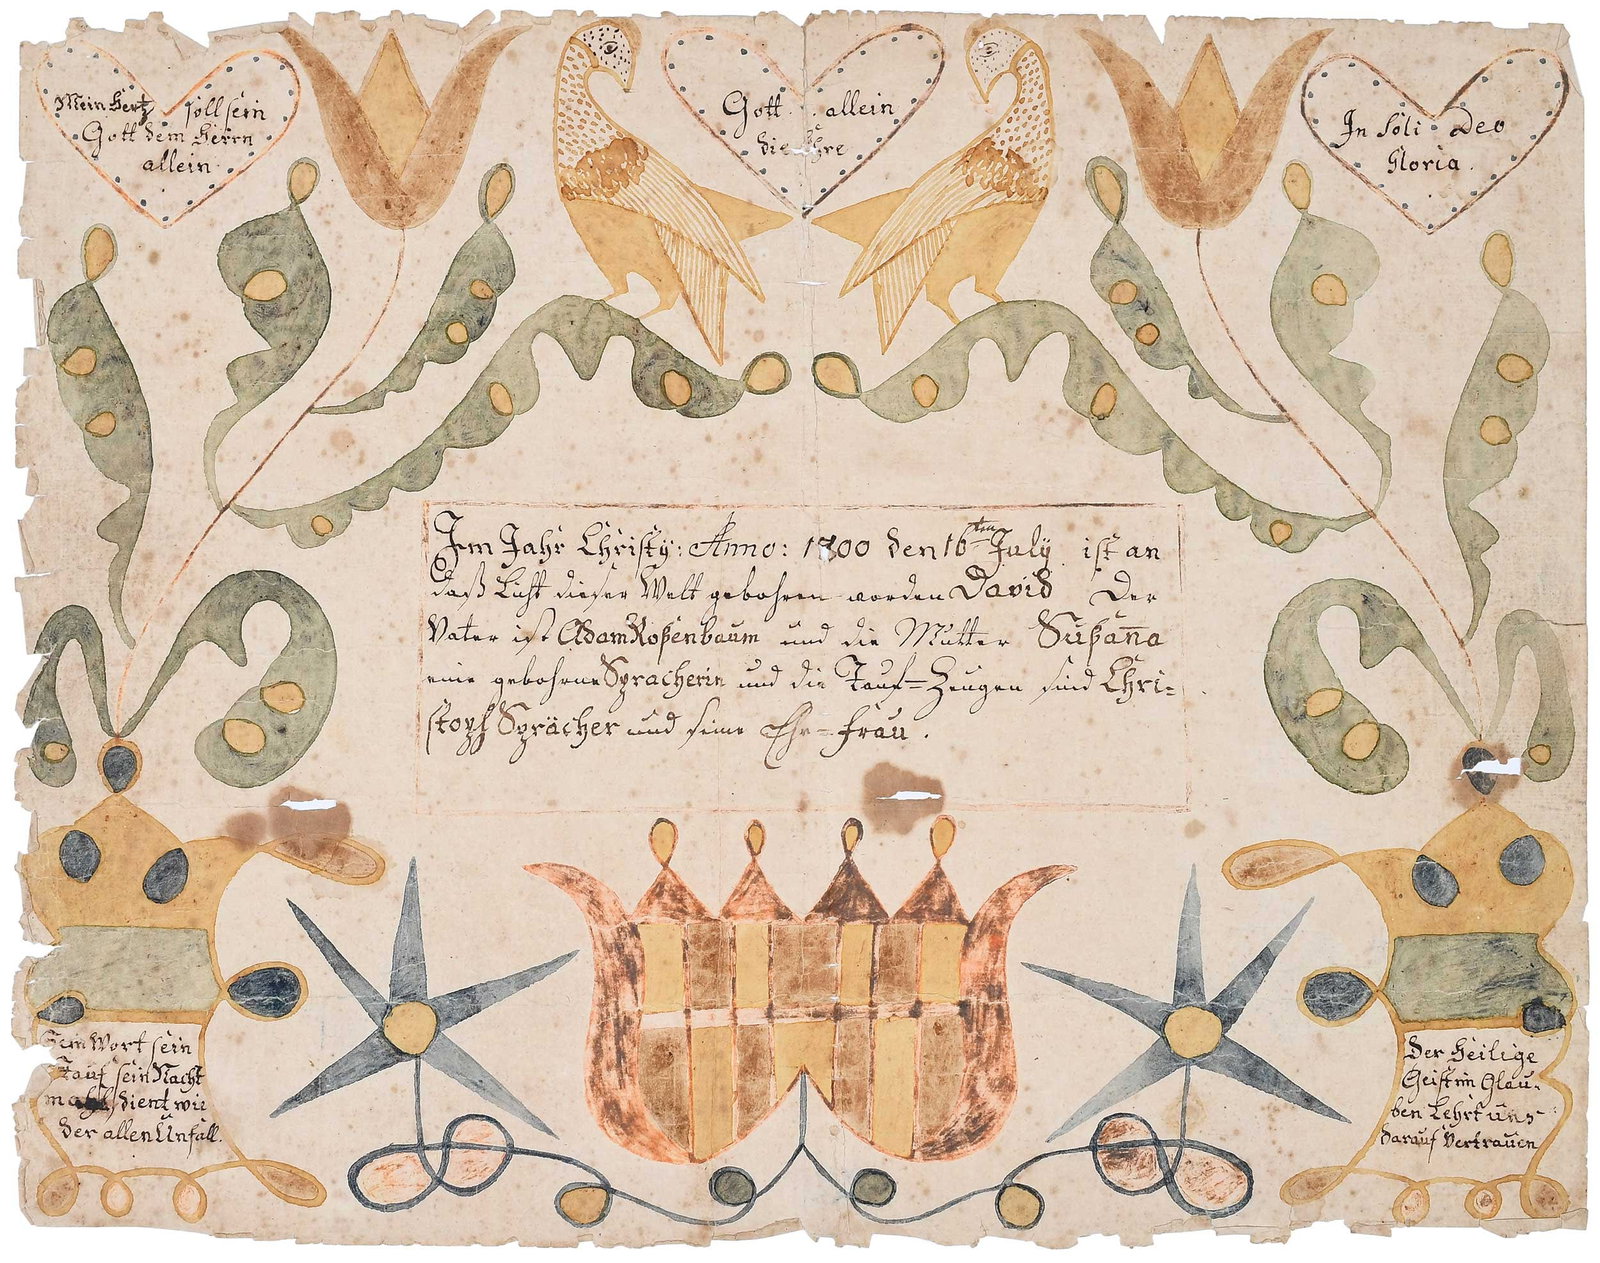 Mein Hertz soll sein
Gott dem Herrn
allein.
Gott allein
die Ehre
In Soli Deo
Gloria.
Im Jahr Christy: Anno: 1800 den 16ten July ist an
daß Licht dieser Welt gebohren worden David Der
Vater ist Adam Roßenbaum und die Mutter Sußan̅a
eine gebohrne Spracherin und die Tauf=Zeugen sind Chri=
stoph Sprächer und seine Ehe=frau.
Sein Wort sein
Tauf sein Nacht
mahl dient wie
der allen Unfall.
Der Heilige
Geist im Glau-
ben Lehrt uns
darauf Vertrauen